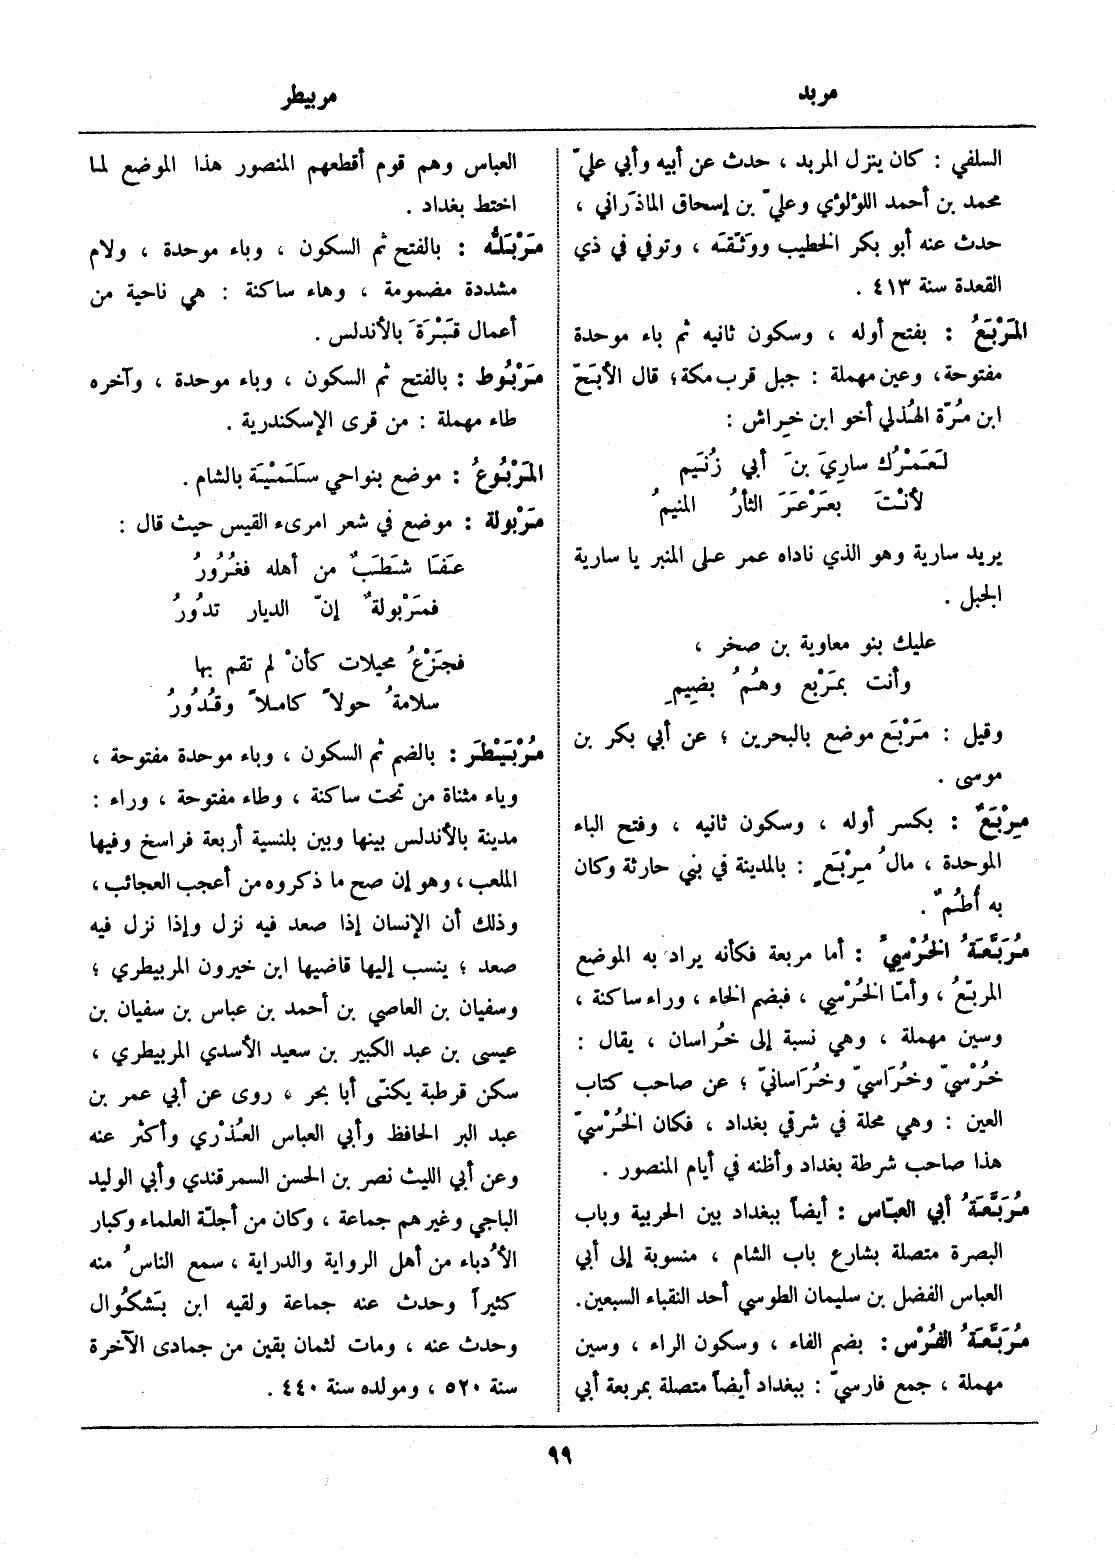 مربد
مربيطر
السلفي : كان ينزل المربد ، حدث عن أبيه وأبي عليّ
محمد بن أحمد اللؤلؤي وعليّ بن إسحاق الماذَراني ،
حدث عنه أبو بكر الخطيب ووَثّقَه ، وتوفي في ذي
القعدة سنة ٤١٣ .
المَرْبَعُ : بفتح أوله ، وسكون ثانيه ثم باء موحدة
مفتوحة، وعين مهملة : جبل قرب مكة؛ قال الأبَحّ
ابن مُرّة الهُذلي أخو ابن خِراش :
لَعَمْرُك ساريَ بنَ أبي زُنَيم
لأنْتَ بعَرْعَرَ الثأرُ المنيمُ
يريد سارية وهو الذي ناداه عمر على المنبر يا سارية
الجبل .
عليك بنو معاوية بن صخر ،
وأنت بمَرْبع وهُمُ بضِيمِ
وقيل : مَرْبَع موضع بالبحرين ؛ عن أبي بكر بن
موسى .
مِرْبَعٌ : بكسر أوله ، وسكون ثانيه ، وفتح الباء
الموحدة ، مالُ مِرْبَعٍ : بالمدينة في بني حارثة وكان
به أُطُمٌ .
مُرَبَّعَةُ الخُرْسِيِّ : أما مربعة فكأنه يراد به الموضع
المربّعُ ، وأمّا الخُرْسي ، فبضم الخاء ، وراء ساكنة ،
وسين مهملة ، وهي نسبة إلى خُراسان ، يقال :
خُرْسيّ وخُرَاسيّ وخُرَاسانيّ ؛ عن صاحب كتاب
العين : وهي محلة في شرقي بغداد ، فكان الخُرْسيّ
هذا صاحب شرطة بغداد وأظنه في أيام المنصور .
مُرَبَّعَةُ أبي العبّاس : أيضاً ببغداد بين الحربية وباب
البصرة متصلة بشارع باب الشام ، منسوبة إلى أبي
العباس الفضل بن سليمان الطوسي أحد النقباء السبعين.
مُرَبَّعَةُ الفُرْس : بضم الفاء ، وسكون الراء ، وسين
مهملة ، جمع فارسيّ : ببغداد أيضاً متصلة بمربعة أبي
العباس وهم قوم أقطعهم المنصور هذا الموضع لما
اختط بغداد .
مَرْبَلُّه : بالفتح ثم السكون ، وباء موحدة ، ولام
مشددة مضمومة ، وهاء ساكنة : هي ناحية من
أعمال قَبْرَةَ بالأندلس .
مَرْبُوط : بالفتح ثم السكون ، وباء موحدة ، وآخره
طاء مهملة : من قرى الإسكندرية .
المَرْبُوعُ : موضع بنواحي سَلَمْيَة بالشام .
مَرْبولة : موضع في شعر امرىء القيس حيث قال :
عَفَا شَطَبٌ من أهله فغُرُورُ
فمَرْبولةٌ إنّ الديار تدُورُ
فجَزْعُ محيلات كأنْ لم تقم بها
سلامةُ حولاً كاملاً وقُدُورُ
مُرْبَيْطَر : بالضم ثم السكون ، وباء موحدة مفتوحة ،
وياء مثناة من تحت ساكنة ، وطاء مفتوحة ، وراء :
مدينة بالأندلس بينها وبين بلنسية أربعة فراسخ وفيها
الملعب ، وهو إن صح ما ذكروه من أعجب العجائب ،
وذلك أن الإنسان إذا صعد فيه نزل وإذا نزل فيه
صعد ؛ ينسب إليها قاضيها ابن خيرون المربيطري ؛
وسفيان بن العاصي بن أحمد بن عباس بن سفيان بن
عيسى بن عبد الكبير بن سعيد الأسدي المربيطري ،
سكن قرطبة يكنّى أبا بحر ، روى عن أبي عمر بن
عبد البر الحافظ وأبي العباس العُذْري وأكثر عنه
وعن أبي الليث نصر بن الحسن السمرقندي وأبي الوليد
الباجي وغيرهم جماعة ، وكان من أجلّة العلماء وكبار
الأُدباء من أهل الرواية والدراية ، سمع الناسُ منه
كثيراً وحدث عنه جماعة ولقيه ابن بَشْكُوال
وحدث عنه ، ومات لثمان بقين من جمادى الآخرة
سنة ٥٢٠ ، ومولده سنة ٤٤٠ .
٩٩